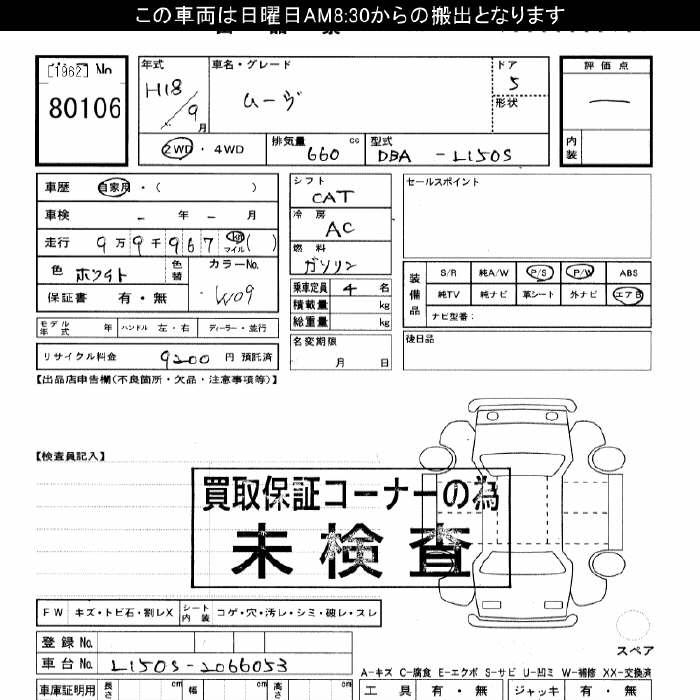 この車両は日曜日AM8:30からの搬出となります
[1962] No
80106
年式 H18/9月
車名・グレード ムーヴ
ドア 5
形状
評価点 —
内装
2WD・4WD
排気量 660 cc
型式 DBA - L150S
車歴 自家用・( )
車検 - 年 - 月
走行 9万9千967 km マイル( )
色 ホワイト 色替
カラーNo. W09
保証書 有・無
シフト CAT
冷房 AC
燃料 ガソリン
乗車定員 4 名
積載量 kg
総重量 kg
名変期限 月 日
セールスポイント
装備品
S/R 純A/W P/S P/W ABS
純TV 純ナビ 革シート 外ナビ エアB
ナビ型番:
後日品
モデル年式 年 ハンドル 左・右 ディーラー・並行
リサイクル料金 9200 円 預託済
【出品店申告欄(不良箇所・欠品・注意事項等)】
【検査員記入】
買取保証コーナーの為
未検査
FW キズ・トビ石・割レX シート内装 コゲ・穴・汚レ・シミ・破レ・スレ
登録No.
車台No. L150S-2066053
スペア
A-キズ C-腐食 E-エクボ S-サビ U-凹ミ W-補修 XX-交換済
車庫証明用 長さ cm 幅 cm 高さ cm
工具 有・無 ジャッキ 有・無